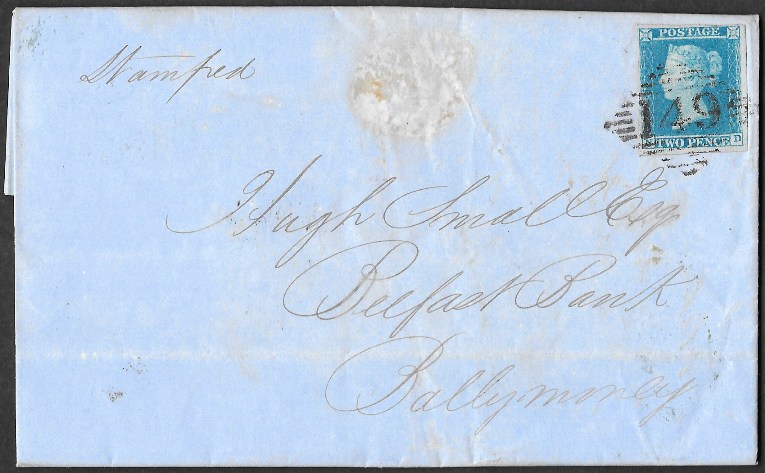 Stamped
POSTAGE
149
TWO PENCE
D
Hugh Small Esq
Belfast Bank
Ballymoney